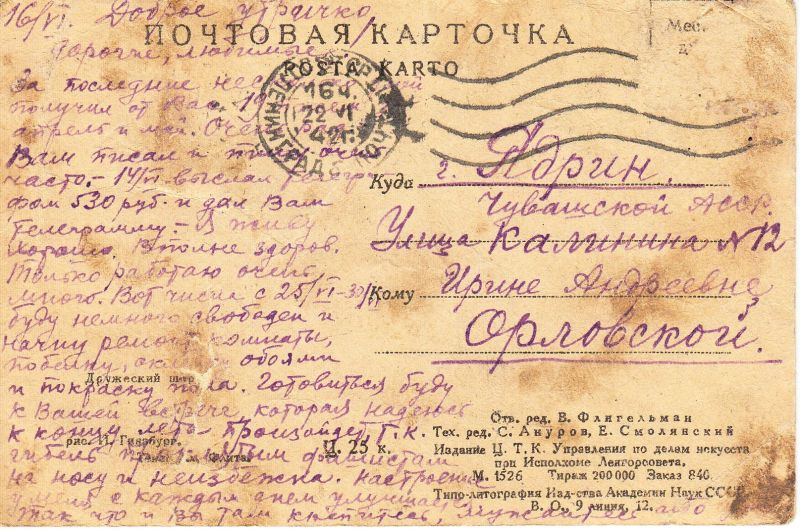 16/VI. Доброе утричко
Дорогие, любимые
ПОЧТОВАЯ КАРТОЧКА
POSTA KARTO
За последние
получил от Вас 19
апрель и май.
Вам писал и
часто. - 14/VI выслал
фом 530 руб. и дал Вам
телеграмму. - Я живу
хорошо, вполне здоров.
Только работаю очень
много. Вот числа с 25/VI-30/VI
буду немного свободен и
начну ремонт комнаты,
побелку, обоями
и покраску пола. Готовиться буду
к Вашей встрече, которая надеюсь
к концу лета произойдет Т.К.
гибель фашистам
на носу и неизбежна. Настроение
у меня с каждым днем
Так что и Вы там крепитесь,
ЛЕНИНГРАД
164
22 VI
42
Куда г. Ядрин.
Чувашской Асср.
Улица Калинина N 12
Кому Ирине Андреевне
Орловской.
Дружеский
рис. И. Гинзбург.
Ц. 25 к.
Отв. ред. В. Флигельман
Тех. ред. С. Ануров, Е. Смолянский
Издание Ц. Т. К. Управления по делам искусств
при Исполкоме Ленгорсовета.
М. 1526 Тираж 200 000 Заказ 840.
Типо-литография Изд-ства Академии Наук СССР.
В. О., 9 линия, 12.